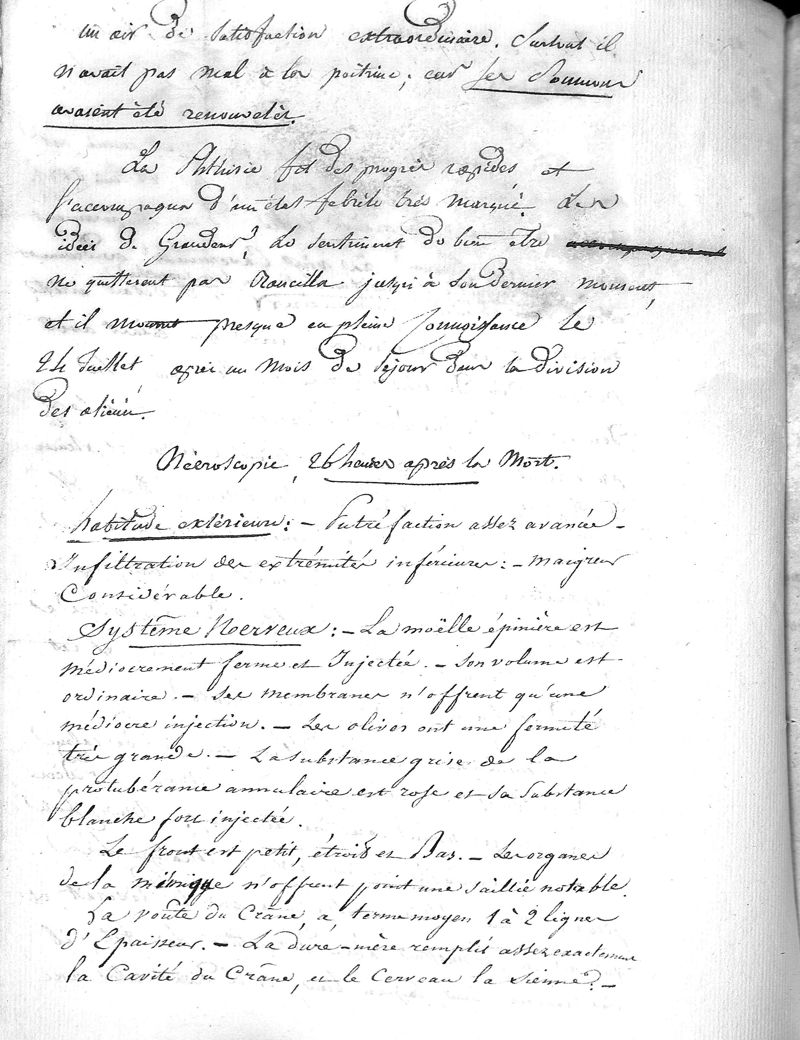 un air de satisfaction extraordinaire. Surtout il
n'avait pas mal à la poitrine, car ses Poumons
avaient été renouvelés.
La Phthisie fit des progrès rapides et
s'accompagna d'un état fébrile très marqué. Les
idées de Grandeur, le sentiment de bien être
ne quittèrent pas jusqu'à son dernier moment,
et il mourut presque en pleine Connoissance le
24 Juillet après un mois de séjour dans la division
des aliénés.
Nécroscopie, 26 heures après la Mort.
habitude extérieure : – Putréfaction assez avancée –
Infiltration des extrémités inférieures : – maigreur
Considérable.
Système Nerveux : – La moëlle épinière est
médiocrement ferme et Injectée. – Son volume est
ordinaire. – Ses membranes n'offrent qu'une
médiocre injection. – Les olives ont une fermeté
très grande. – La substance grise de la
protubérance annulaire est rose et sa Substance
blanche fort injectée.
Le front est petit, étroit et Bas. – Les organes
de la n'offrent point une saillie notable.
La voûte du Crâne, a terme moyen 1 à 2 lignes
d'Epaisseur. – La dure-mère remplit assez exactement
la Cavité du Crâne, et le Cerveau la sienne. –